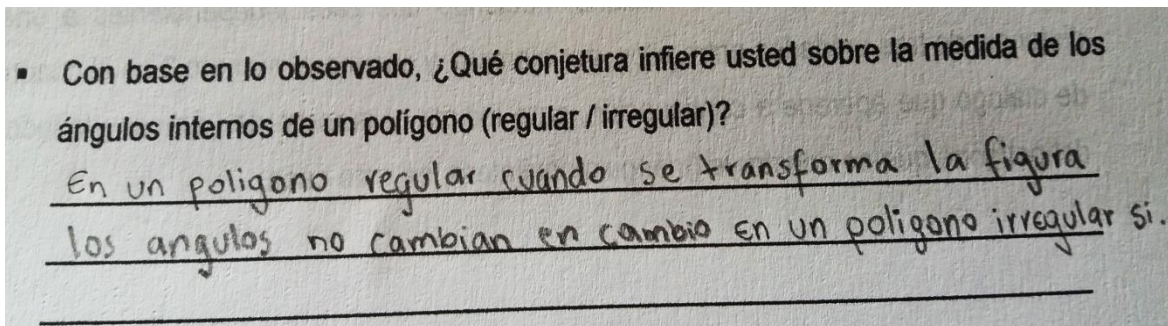 ▪ Con base en lo observado, ¿Qué conjetura infiere usted sobre la medida de los
ángulos internos de un polígono (regular / irregular)?
En un poligono regular cuando se transforma la figura
los angulos no cambian en cambio en un poligono irregular si.